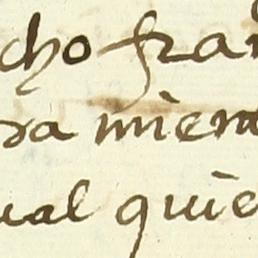 cho fran
ra mient
ual quie